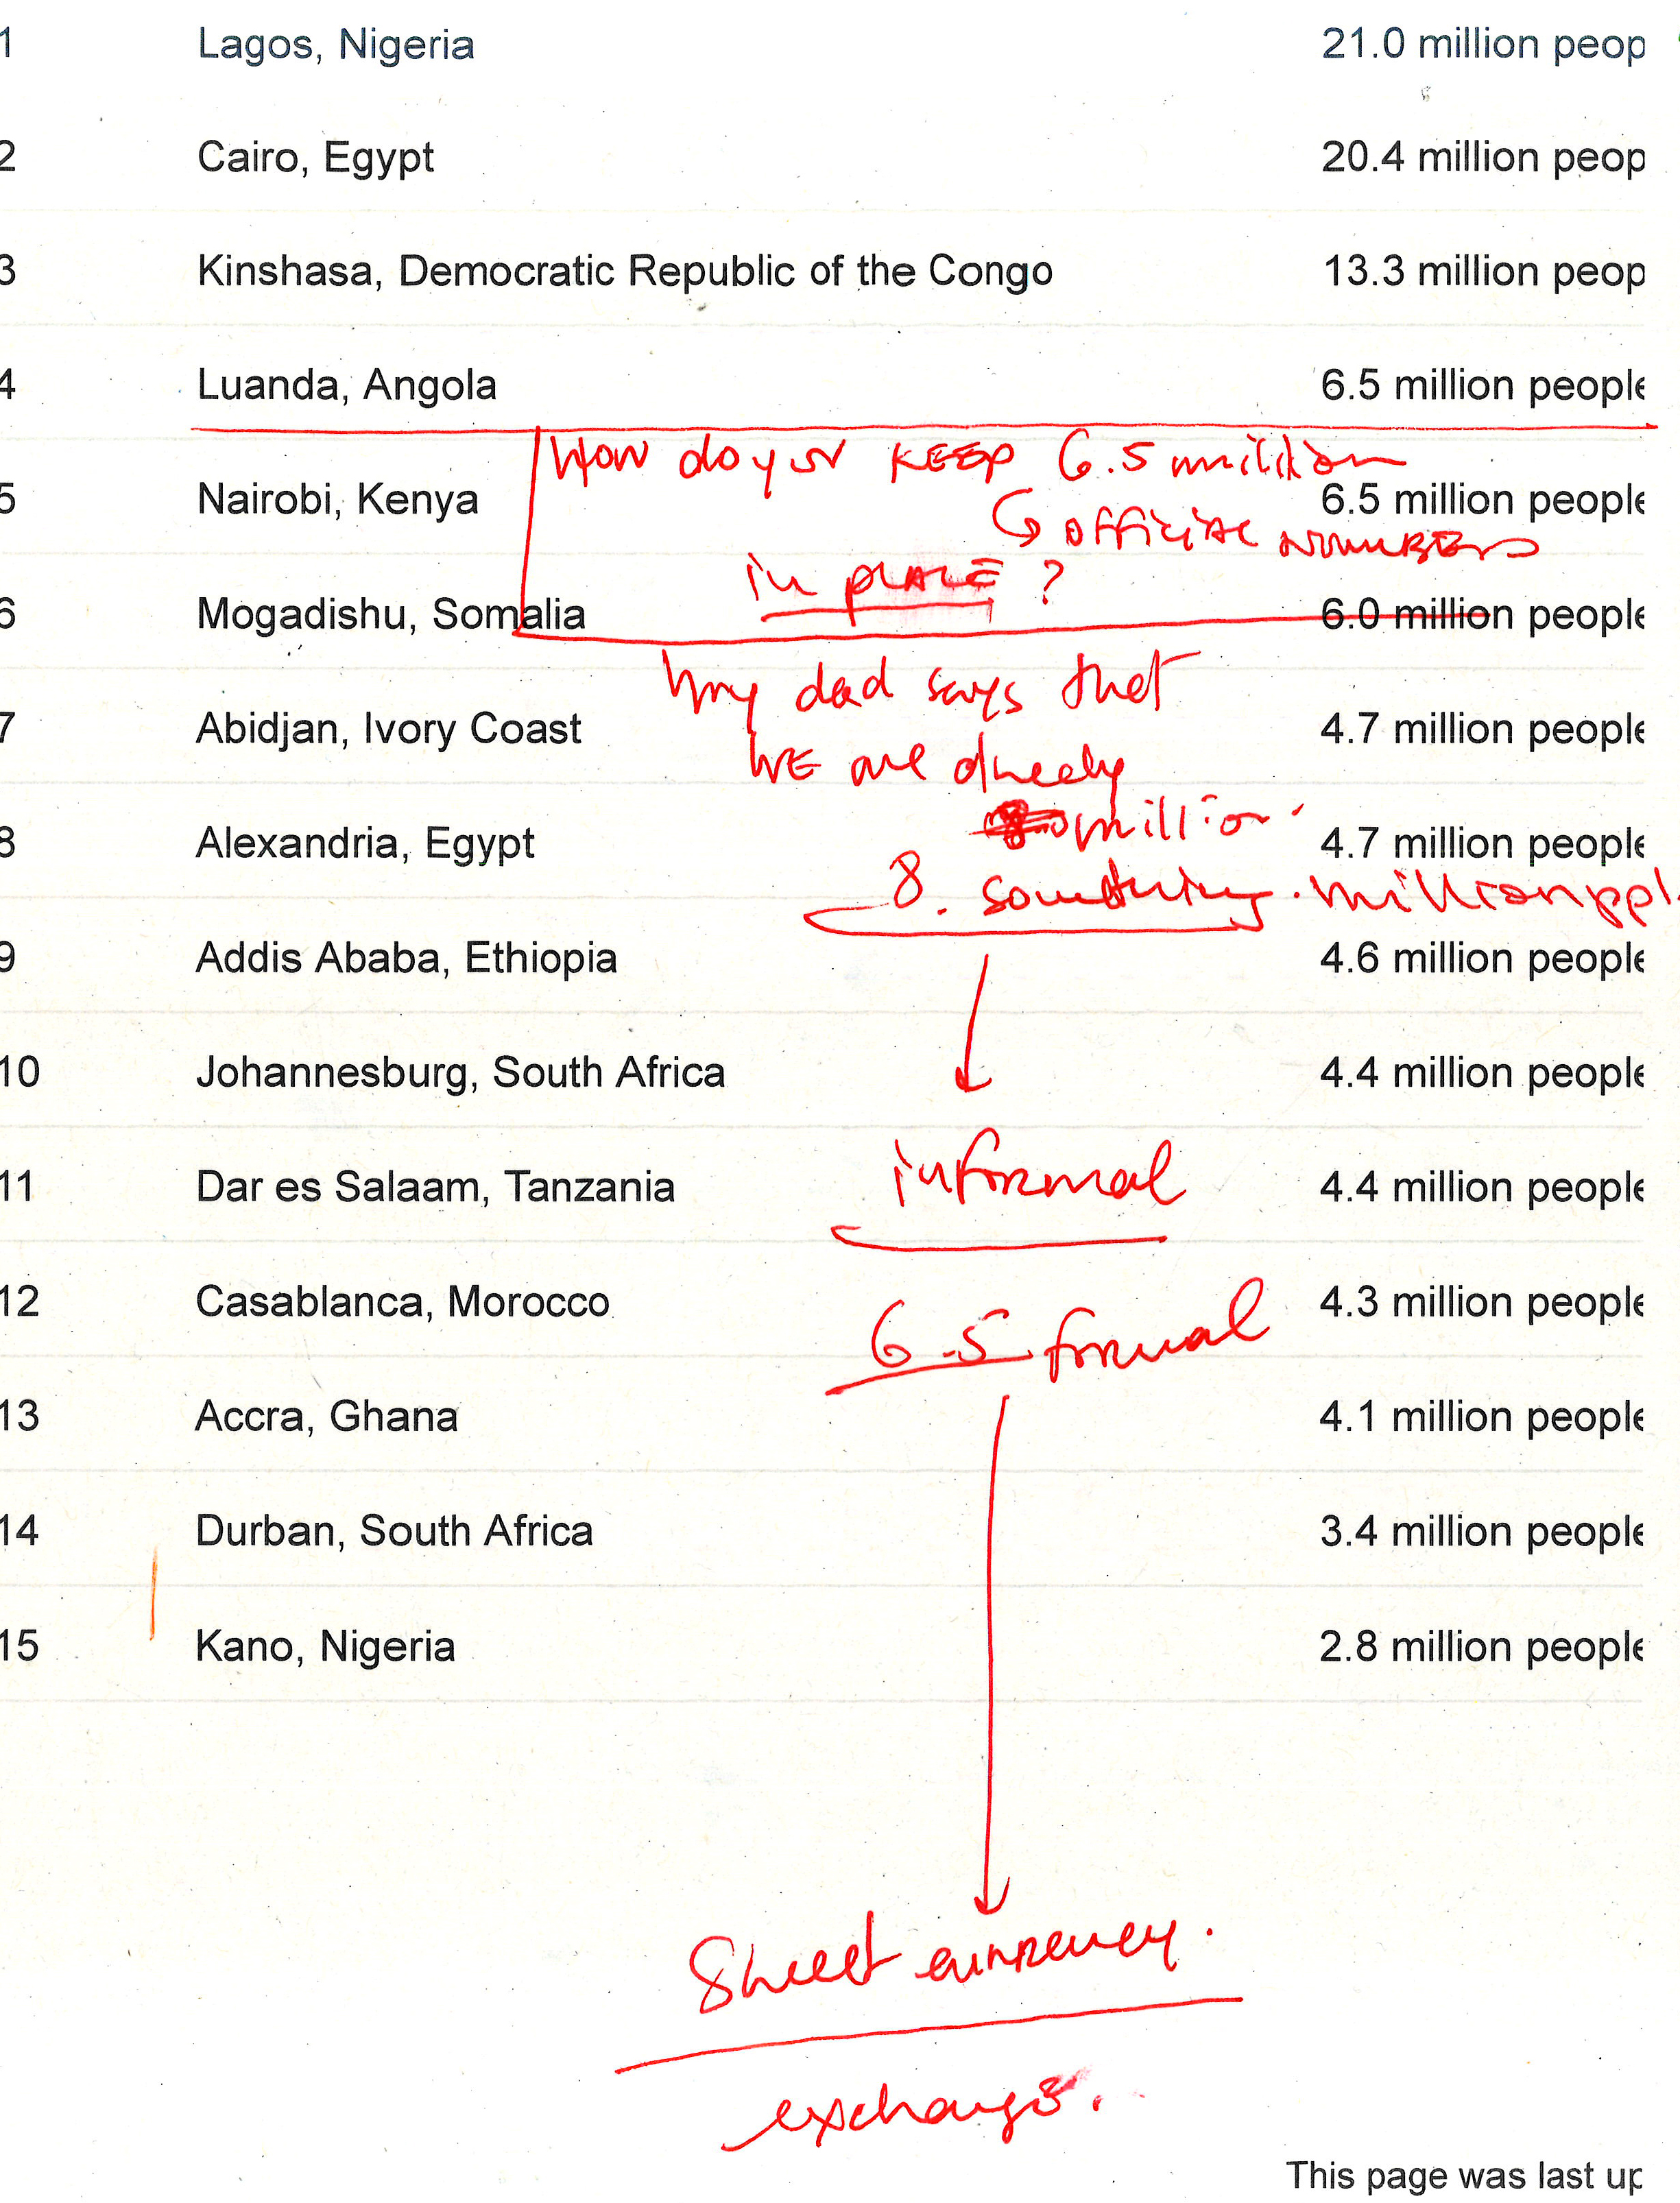 1 Lagos, Nigeria 21.0 million peop
2 Cairo, Egypt 20.4 million peop
3 Kinshasa, Democratic Republic of the Congo 13.3 million peop
4 Luanda, Angola 6.5 million people
How do you KEEP 6.5 million
5 Nairobi, Kenya 6.5 million people
official NUMBERS
in PLACE ?
6 Mogadishu, Somalia 6.0 million people
my dad says that
7 Abidjan, Ivory Coast 4.7 million people
WE are already
million.
8 Alexandria, Egypt 4.7 million people
8. something. million ppl.
9 Addis Ababa, Ethiopia 4.6 million people
10 Johannesburg, South Africa 4.4 million people
informal
11 Dar es Salaam, Tanzania 4.4 million people
12 Casablanca, Morocco 4.3 million people
6.5 formal
13 Accra, Ghana 4.1 million people
14 Durban, South Africa 3.4 million people
15 Kano, Nigeria 2.8 million people
Street currency.
exchange.
This page was last up